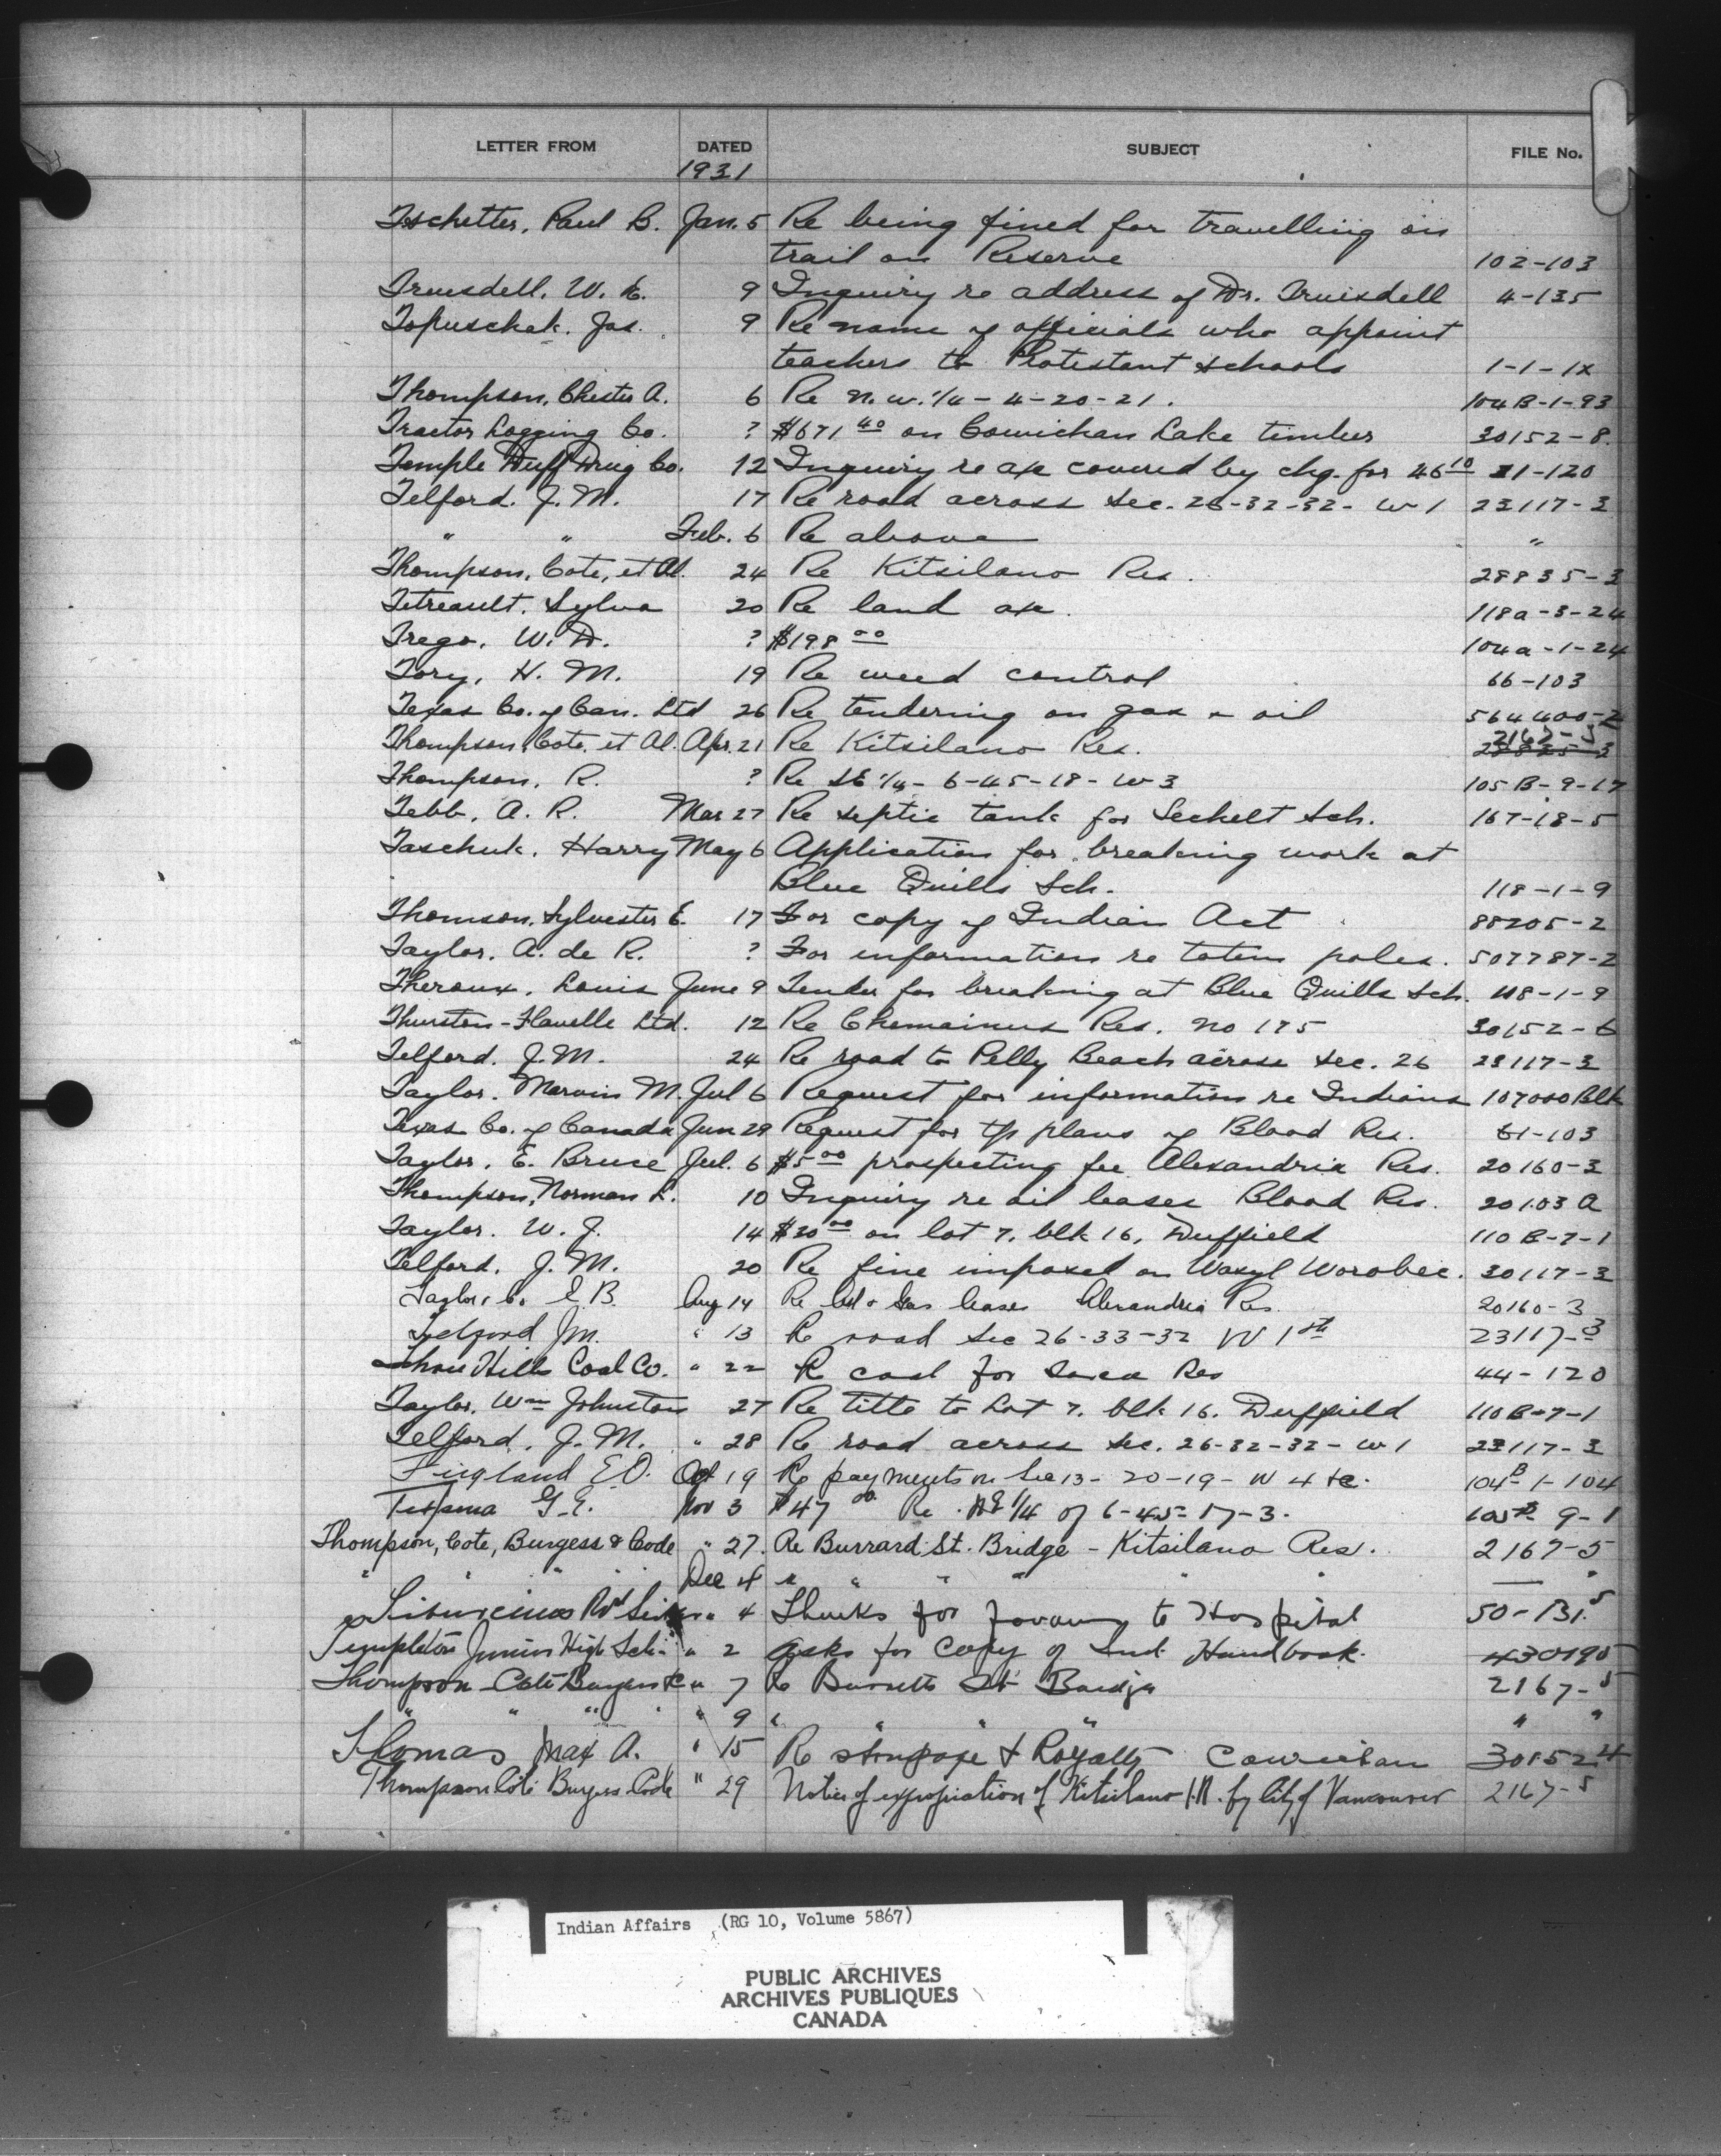 LETTER FROM DATED SUBJECT FILE No.
1931
Tschetter, Paul B. Jan. 5 Re being fined for travelling on
trail on Reserve 102-103
Truesdell, W. E. 9 Inquiry re address of Dr. Truesdell 4-135
Topuschak, Jas. 9 Re name of officials who appoint
teachers to Protestant schools 1-1-1X
Thompson, Chester A. 6 Re N.W. 1/4 - 4-20-21. 104B-1-93
Tractor Logging Co. ? $671 40 on Cowichan Lake timber 30152-8
Temple Duff Drug Co. 12 Inquiry re a/c covered by chq. for 46 10 21-120
Telford. J. M. 17 Re road across Sec. 26-32-32- W 1 23117-3
" " Feb. 6 Re above "
Thompson, Cote, et Al. 24 Re Kitsilano Res. 28835-3
Tetreault, Sylva 20 Re land a/c. 118a-3-24
Trego, W. D. ? $198 00 104a-1-24
Tory, H. M. 19 Re weed control 66-103
Texas Co. of Can. Ltd 26 Re tendering on gas & oil 564400-2
Thompson, Cote, et Al. Apr. 21 Re Kitsilano Res. 2167-5
28835-3
Thompson, R. ? Re SE 1/4 - 6-45-18- W 3 105 B-9-17
Tebb, A. R. Mar 27 Re septic tank for Sechelt Sch. 167-18-5
Taschuk, Harry May 6 Application for breaking work at
Blue Quills Sch. 118-1-9
Thomson, Sylvester E. 17 For copy of Indian Act 88205-2
Taylor, A. de R. ? For information re totem poles. 507787-2
Theroux, Louis June 9 Tender for breaking at Blue Quills Sch. 118-1-9
Thurston-Flavelle Ltd. 12 Re Chemainus Res. No 175 30152-6
Telford. J. M. 24 Re road to Pelly Beach across Sec. 26 23117-3
Taylor. Marvin M. Jul 6 Request for information re Indians 107000 Blk
Texas Co. of Canada Jun 29 Request for t/p plans of Blood Res. 61-103
Taylor, E. Bruce Jul. 6 $5 00 prospecting fee Alexandria Res. 20160-3
Thompson, Norman L. 10 Inquiry re oil leases Blood Res. 20103 A
Taylor. W. J. 14 $30 00 on lot 7, blk 16, Duffield 110 B-7-1
Telford, J. M. 20 Re fine imposed on Wasyl Worobec. 30117-3
Taylor, E B. Aug 14 Re Oil & Gas leases Alexandria Res. 20160-3
Telford J M. " 13 Re road Sec 26-33-32 W 1st 23117-3
Three Hills Coal Co. " 22 Re coal for Sarcee Res 44-120
Taylor, Wm Johnston 27 Re title to Lot 7, blk 16, Duffield 110B-7-1
Telford, J. M. " 28 Re road across Sec. 26-32-32- W 1 23117-3
Tingland E O. Oct 19 Re payments on Sec 13-20-19- W 4 &c. 104B-1-104
G. E. Nov 3 $47 00 Re. NE 1/4 of 6-45-17-3. 105B 9-1
Thompson, Cote, Burgess & Code " 27. Re Burrard St. Bridge - Kitsilano Res. 2167-5
" " " " Dec 4 " " " " " " — "
Tiburcius Rvd Sister " 4 Thanks for to Hospital 50-131.5
Templeton Junior High Sch. " 2 asks for Copy of Ind. Handbook. 430190
Thompson Cote Burgess &c " 7 Re Burrard St Bridge 2167-5
" " " " " 9 " " " " " "
Thomas Max A. " 15 Re stumpage & Royalty Cowichan 30152-4
Thompson Cote Burgess Code " 29 Notice of expropriation of Kitsilano I.R. by City of Vancouver 2167-5
Indian Affairs (RG 10, Volume 5867)
PUBLIC ARCHIVES
ARCHIVES PUBLIQUES
CANADA